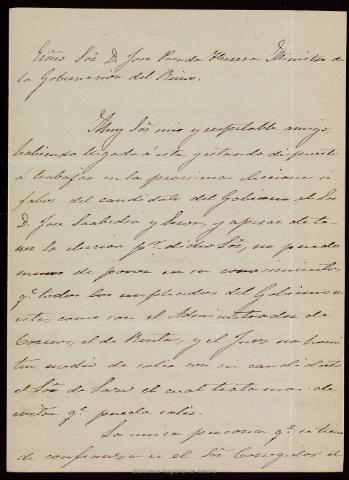 Exmo Sor D. Jose Posada Herrera Ministro de
la Gobernacion del Reino.
Muy Sor mio y respetable amigo
habiendo llegado á esta y estando dispuesto
á trabajar en la procsima eleccion á
favor del candidato del Gobierno el Sor
D. Jose Saabedra y y apesar de
la eleccion pr. dicho Sor, no puedo
menos de poner en su conocimiento,
qe todos los empleados del Gobierno en
esta, como son el Administrador de
Correos, el de Rentas, y el Juez no
medio de salir con su candidato
el Sor de el cual tratan de
qe pueda salir.
La unica persona qe se tiene
de confianza es el Sor Corregidor el